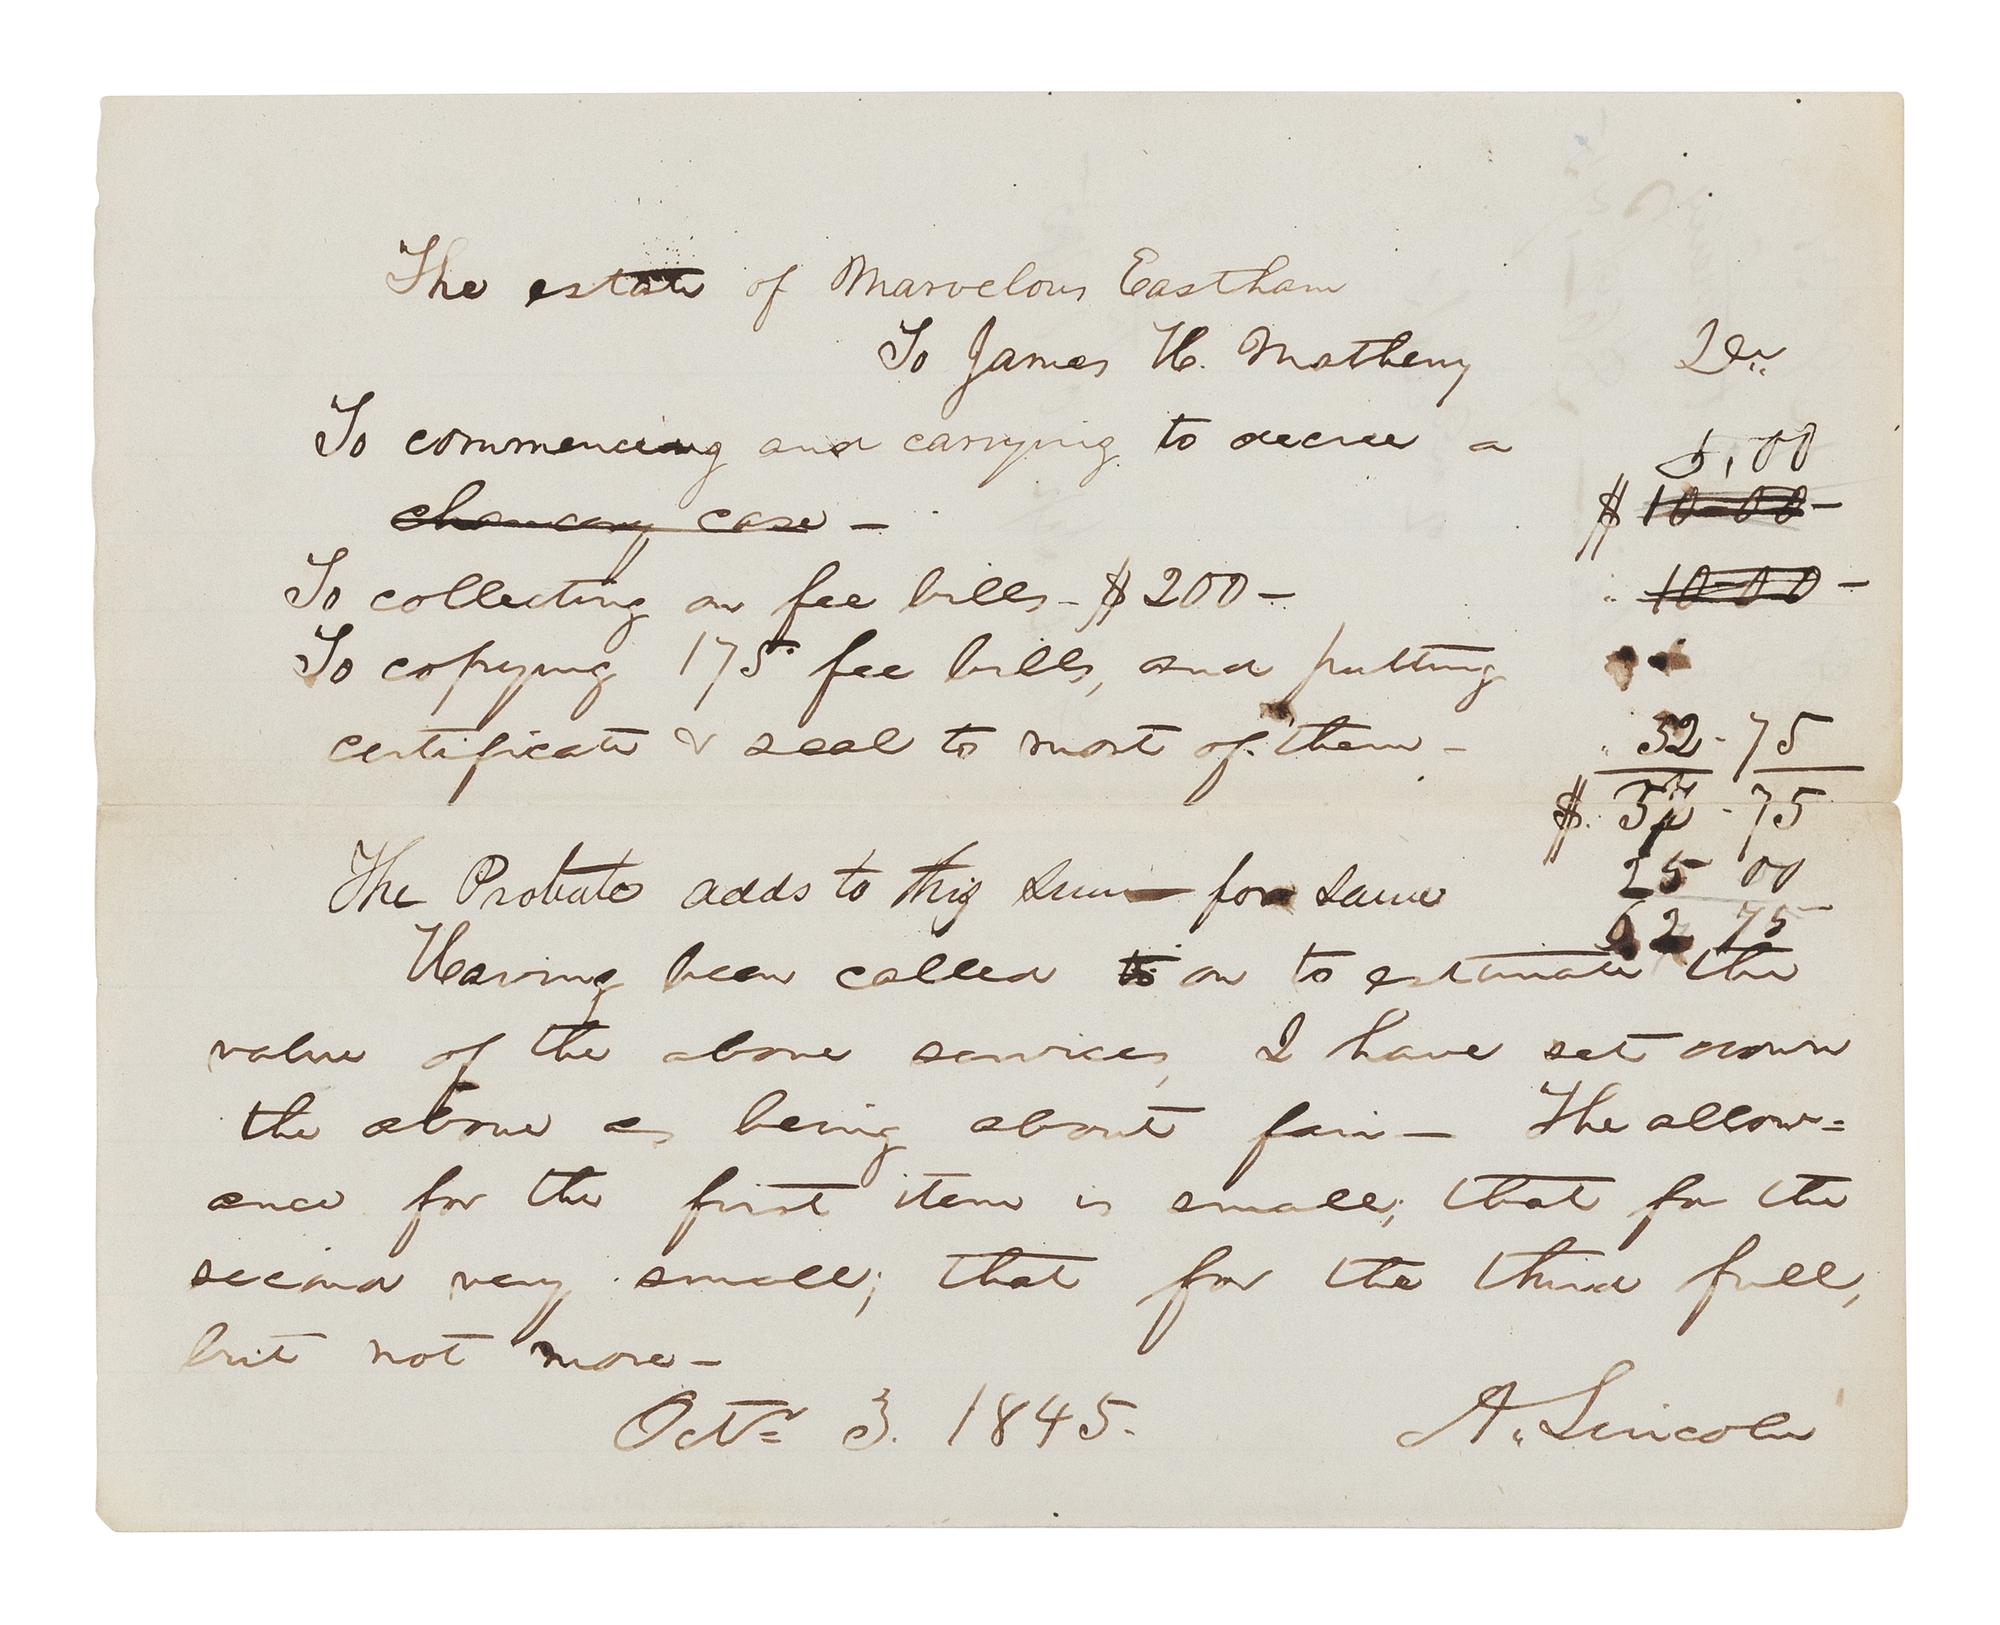 The estate of Marvelous Eastham
To James H. Matheny Dr.
To commencing and carrying to decree a
5,00
chancery case – $ 10-00 –
To collecting on fee bills – $200 – " 10-00 –
To copying 175 fee bills, and putting
certificate & seal to most of them – " 32-75
$. 37-75
The Probate adds to this sum for same 25 00
62 75
Having been called to on to estimate the
value of the above services, I have set down
the above as being about fair – The allow=
ance for the first item is small; that for the
second very small; that for the third full,
but not more –
Octr. 3. 1845. A. Lincoln